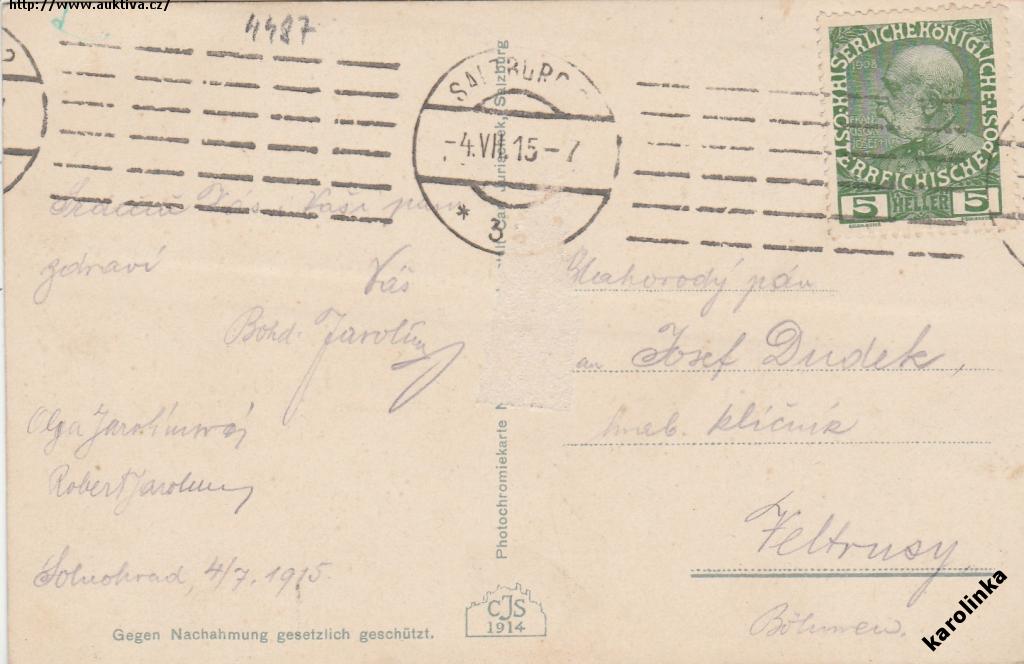 http://www.auktiva.cz/
4487
SALZBURG
-4.VII.15-7
* 3
1908
KAISERLICHE KÖNIGLICHE ÖSTERREICHISCHE POST
5 HELLER 5
Vás
zdraví
Váš
Bohd. Jarolím
Olga Jarolímová
Robert Jarolím
Solnohrad, 4/7. 1915.
Gegen Nachahmung gesetzlich geschützt.
Photochromiekarte
Jurischek, Salzburg
CJS
1914
pán
an Josef Dudek,
klíčník
Veltrusy
Böhmen.
karolinka